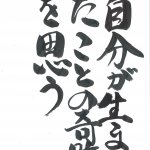 自分が生ま
たことの奇
を思う